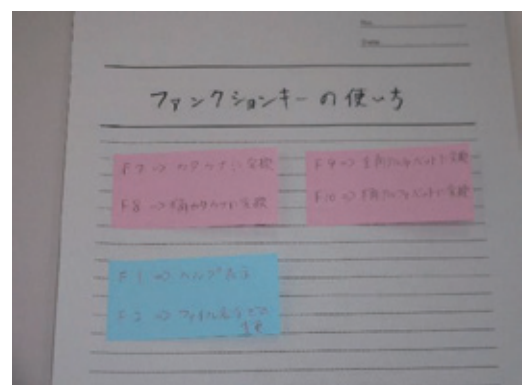 No.
Date
ファンクションキーの使い方
F7 ⇒ カタカナに変換
F8 ⇒ 半角カタカナに変換
F9 ⇒ 全角アルファベットに変換
F10 ⇒ 半角アルファベットに変換
F1 ⇒ ヘルプ表示
F2 ⇒ ファイル名などの
変更